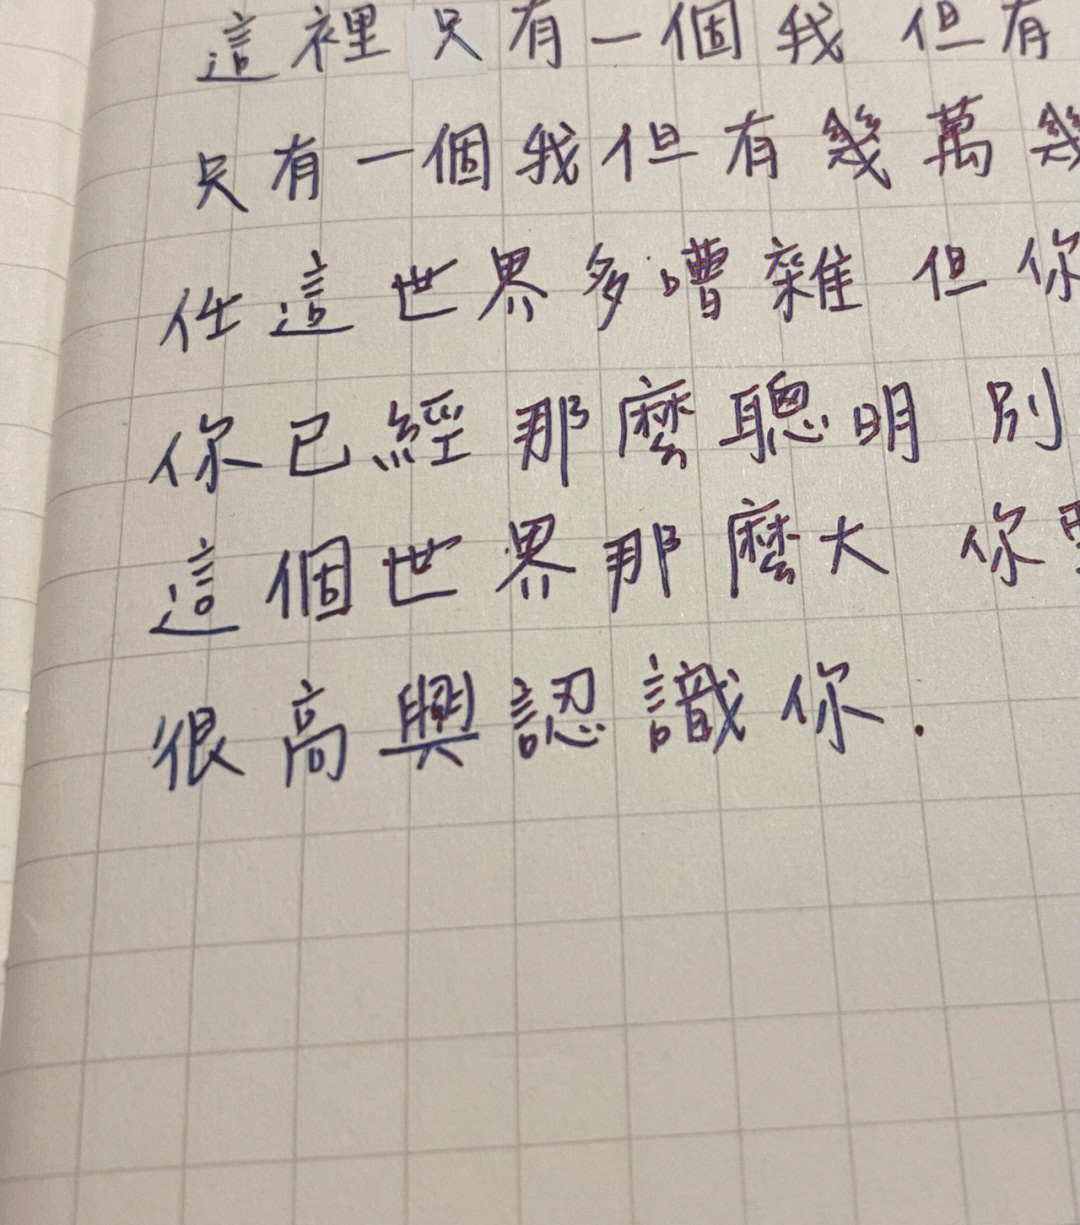 這裡只有一個我 但有
只有一個我但有幾萬幾
任這世界多嘈雜 但你
你已經那麼聰明 別
這個世界那麼大 你
很高興認識你.